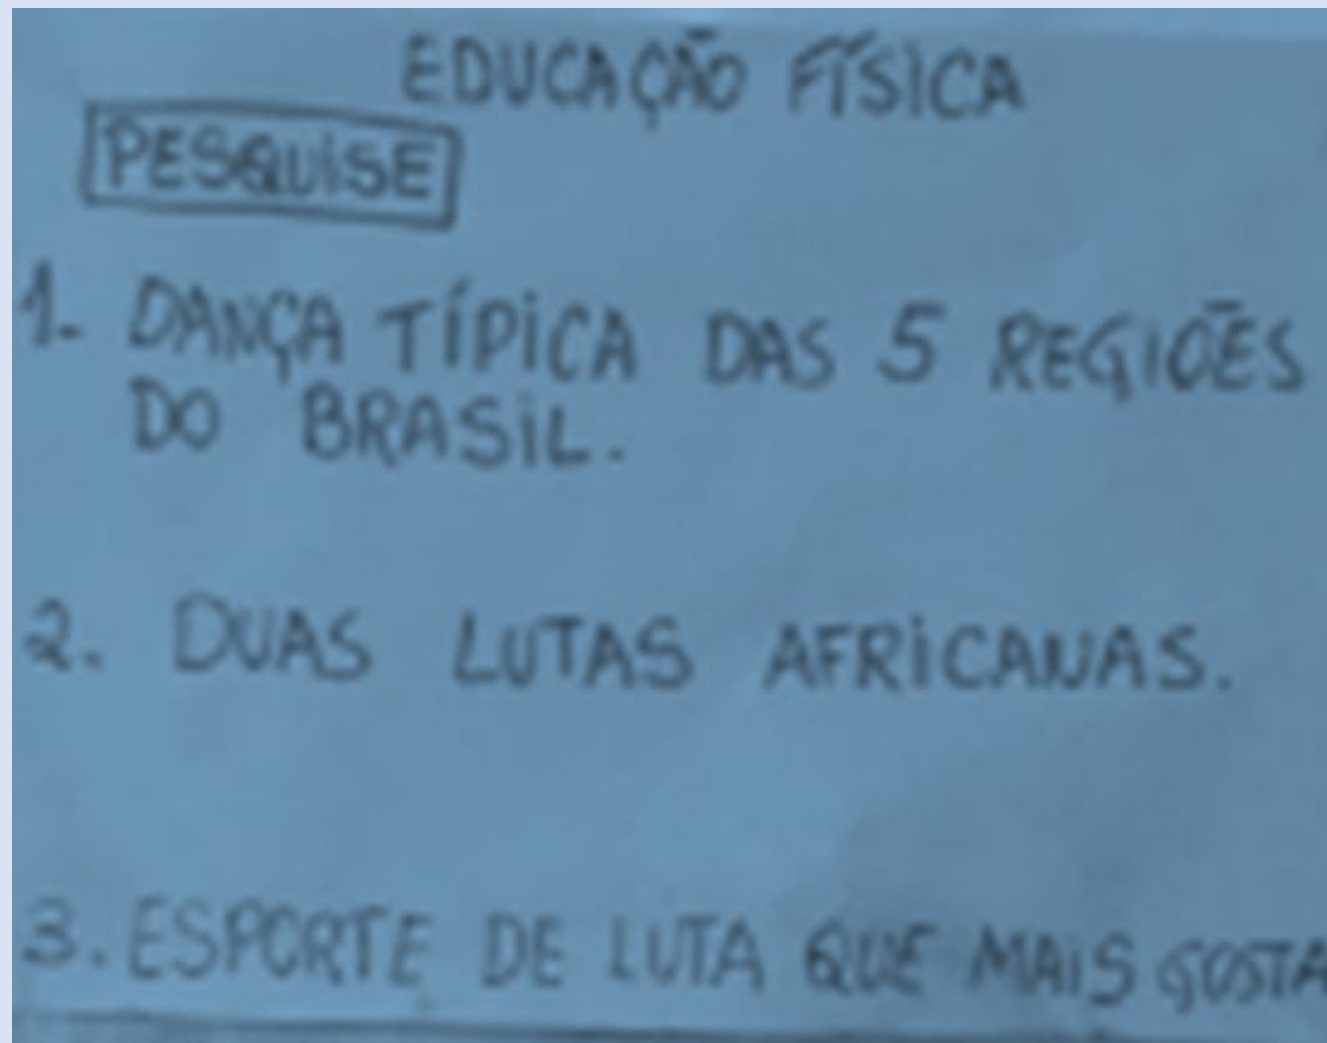 EDUCAÇÃO FÍSICA
PESQUISE
1. DANÇA TÍPICA DAS 5 REGIÕES
DO BRASIL.
2. DUAS LUTAS AFRICANAS.
3. ESPORTE DE LUTA QUE MAIS GOSTA